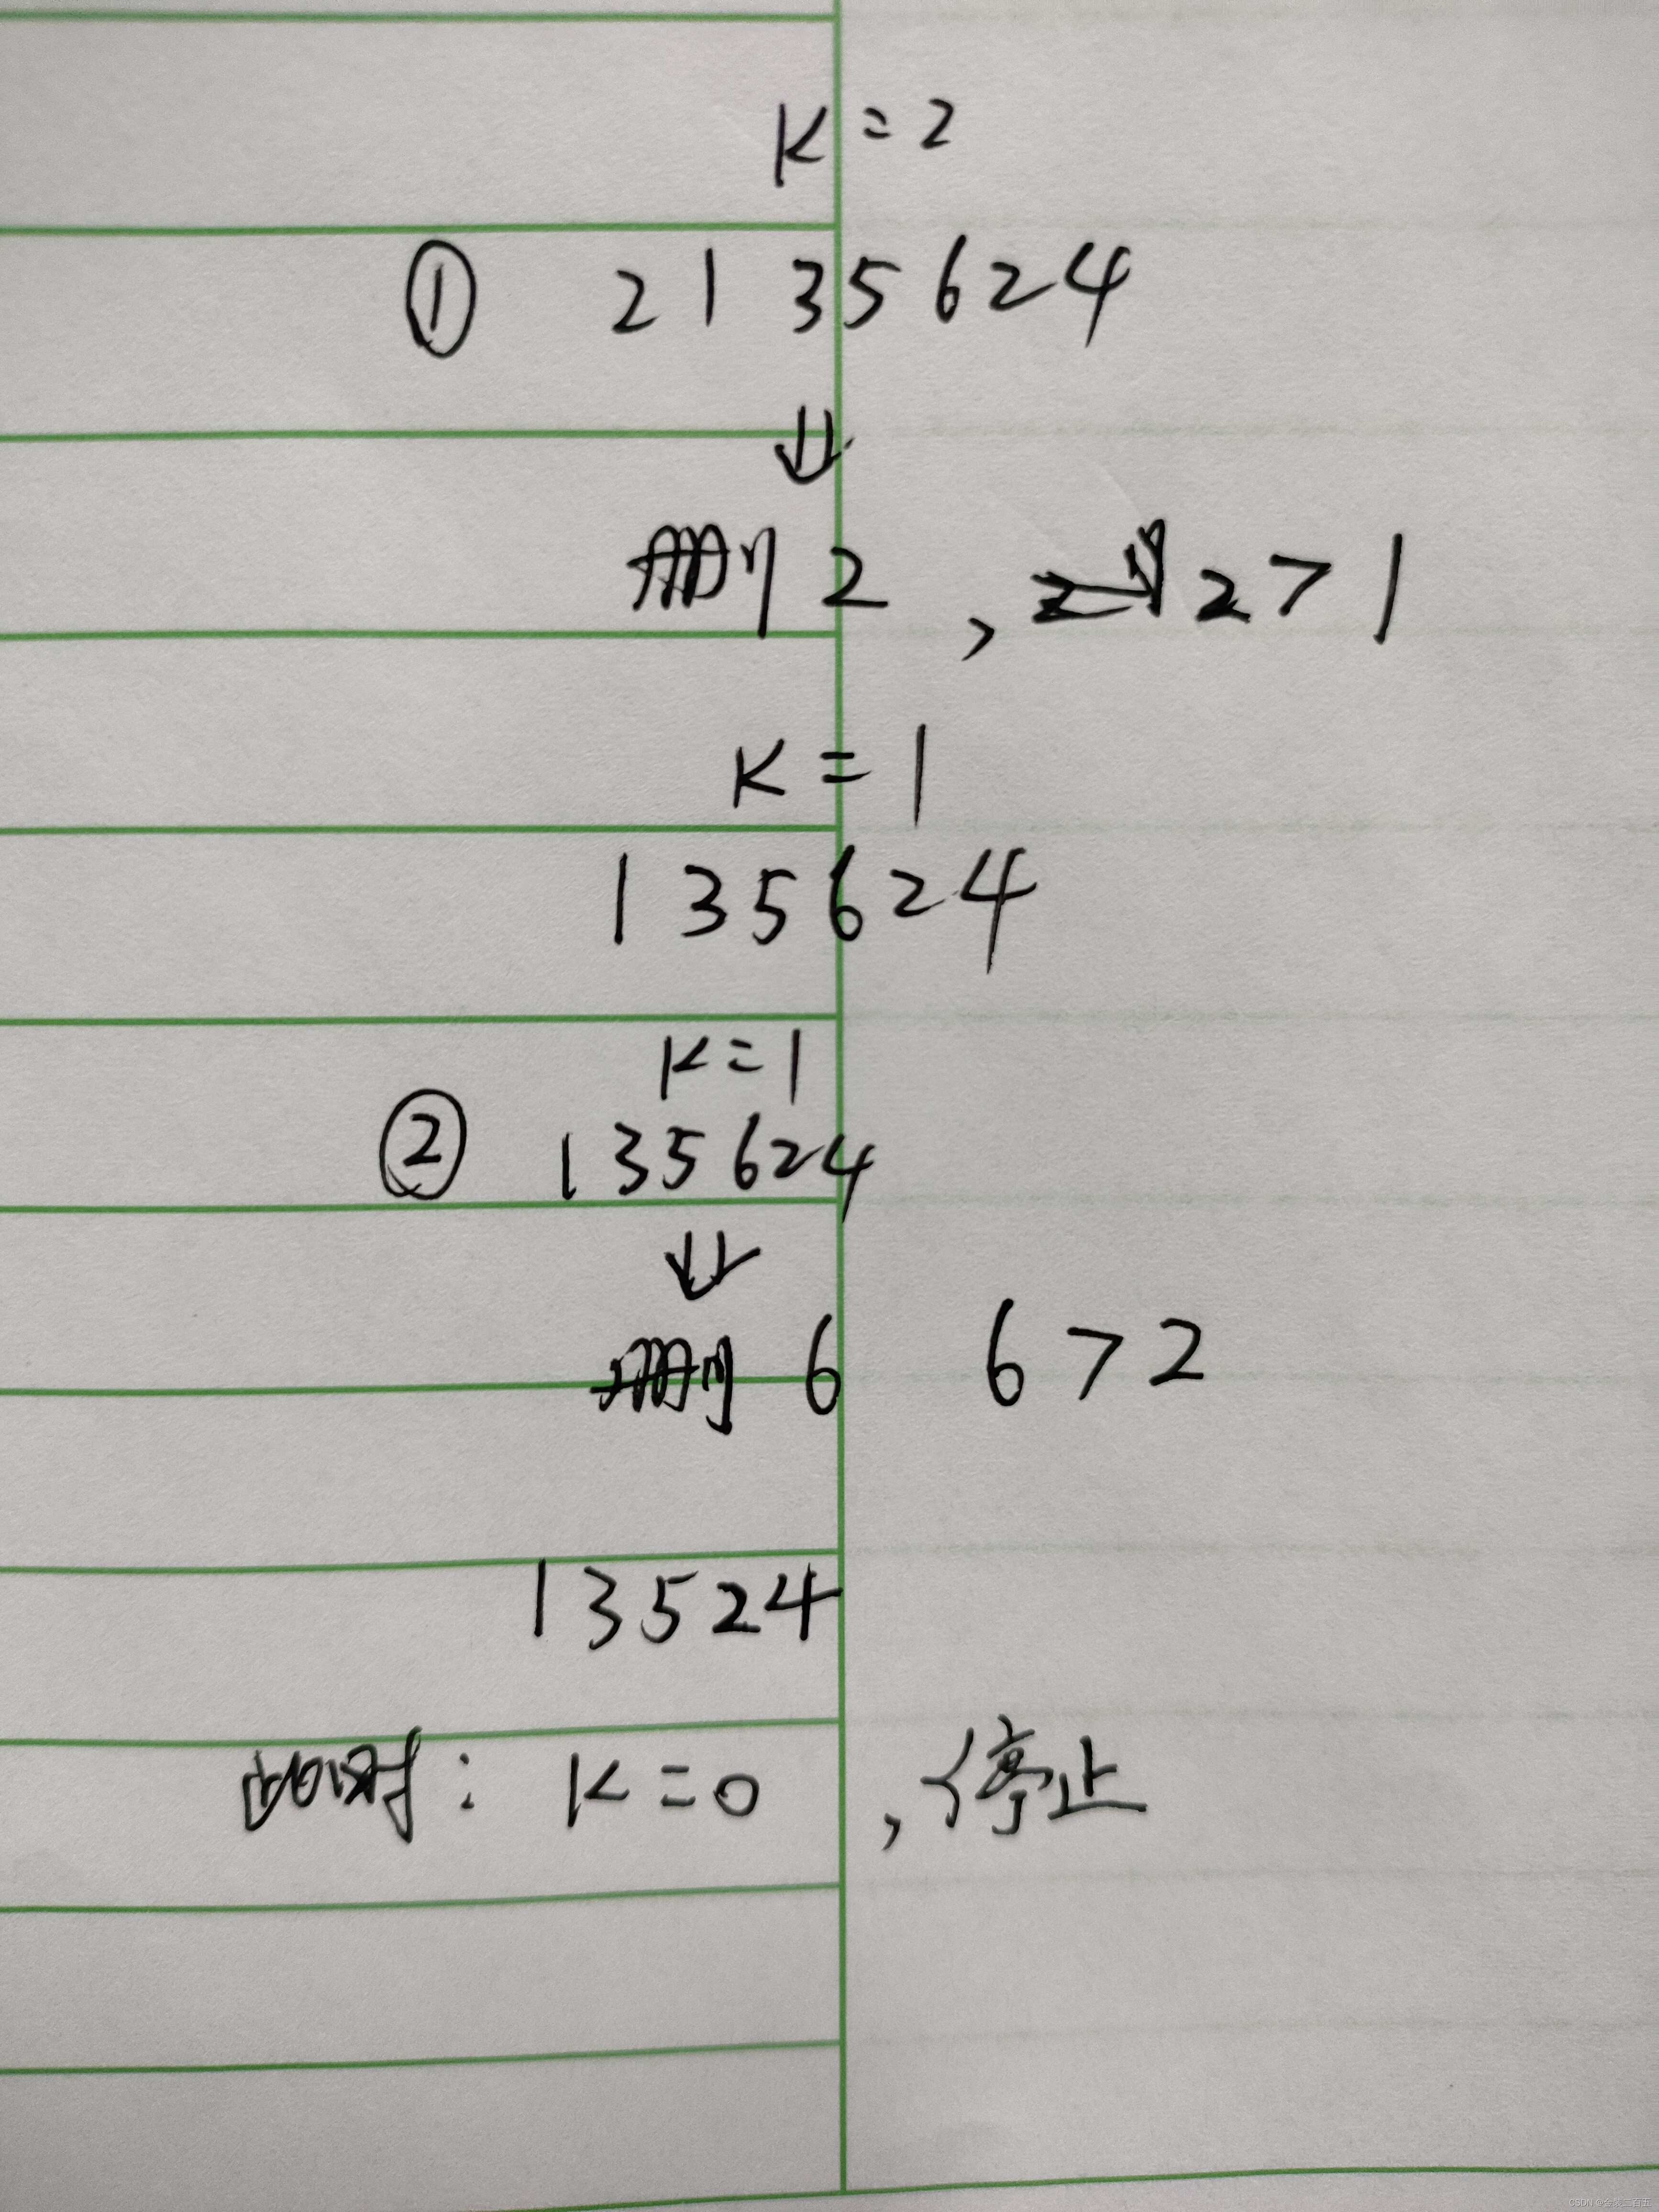 K=2
① 2135624
⇓
删2, 2>1
K=1
135624
K=1
② 135624
⇓
删6 6>2
13524
此时: K=0, 停止